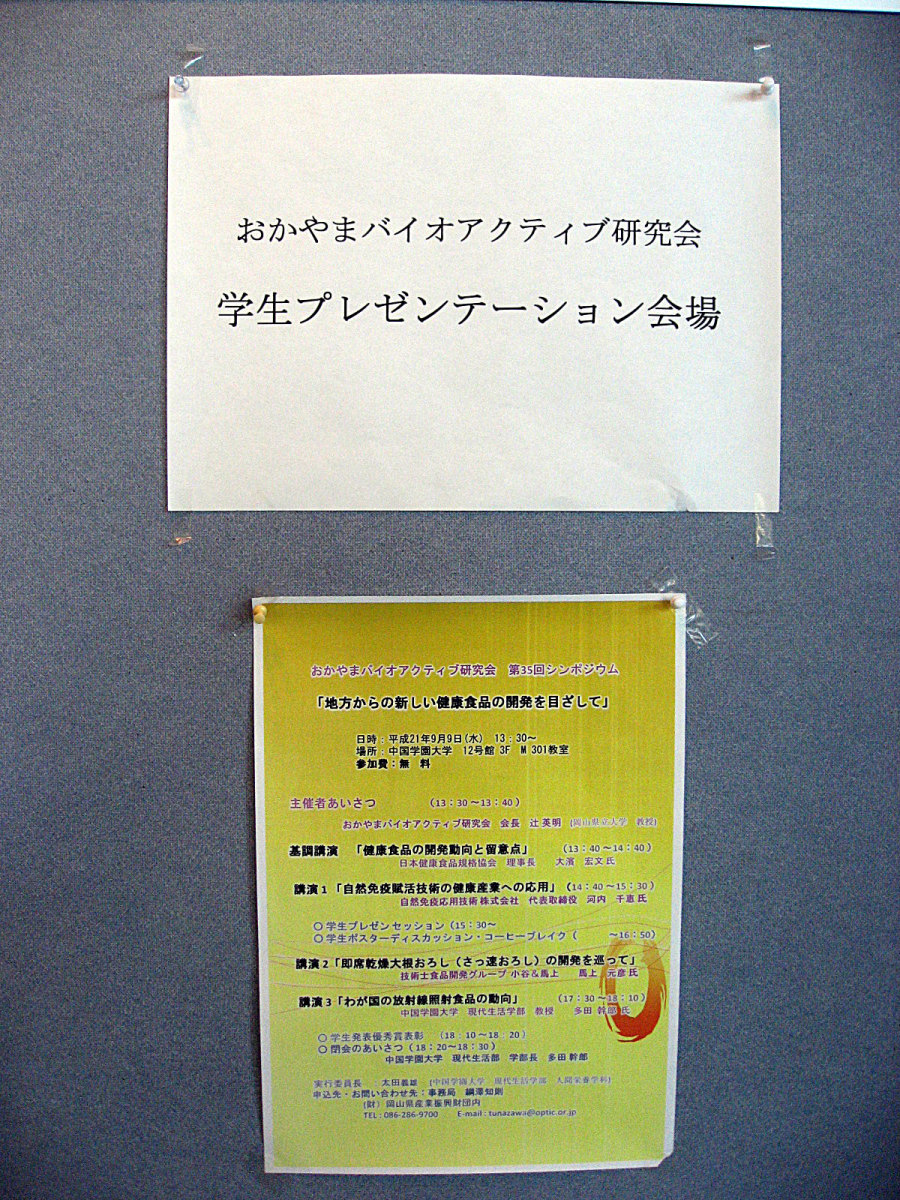 おかやまバイオアクティブ研究会
学生プレゼンテーション会場
おかやまバイオアクティブ研究会　第35回シンポジウム
「地方からの新しい健康食品の開発を目ざして」
日時：平成21年9月9日(水)　13：30～
場所：中国学園大学　12号館 3F　M 301教室
参加費：無　料
主催者あいさつ　（13：30～13：40）
おかやまバイオアクティブ研究会　会長　辻 英明　(岡山県立大学　教授)
基調講演　「健康食品の開発動向と留意点」　（13：40～14：40）
日本健康食品規格協会　理事長　大濱　宏文 氏
講演1「自然免疫賦活技術の健康産業への応用」（14：40～15：30）
自然免疫応用技術 株式会社　代表取締役　河内　千恵 氏
○ 学生プレゼン セッション（15：30～
○ 学生ポスターディスカッション・コーヒーブレイク（　～16：50）
講演2「即席乾燥大根おろし（さっ速おろし）の開発を巡って」
技術士食品開発グループ 小谷＆馬上　馬上　元彦 氏
講演3「わが国の放射線照射食品の動向」　（17：30～18：10）
中国学園大学　現代生活学部　教授　多田　幹郎　氏
○ 学生発表優秀賞表彰　（18：10～18：20）
○ 閉会のあいさつ（18：20～18：30）
中国学園大学　現代生活部　学部長　多田 幹郎
実行委員長　太田義雄　(中国学園大学　現代生活学部　人間栄養学科)
申込先・お問い合わせ先：事務局　綱澤知則
(財）岡山県産業振興財団内
TEL : 086-286-9700　E-mail : tunazawa@optic.or.jp